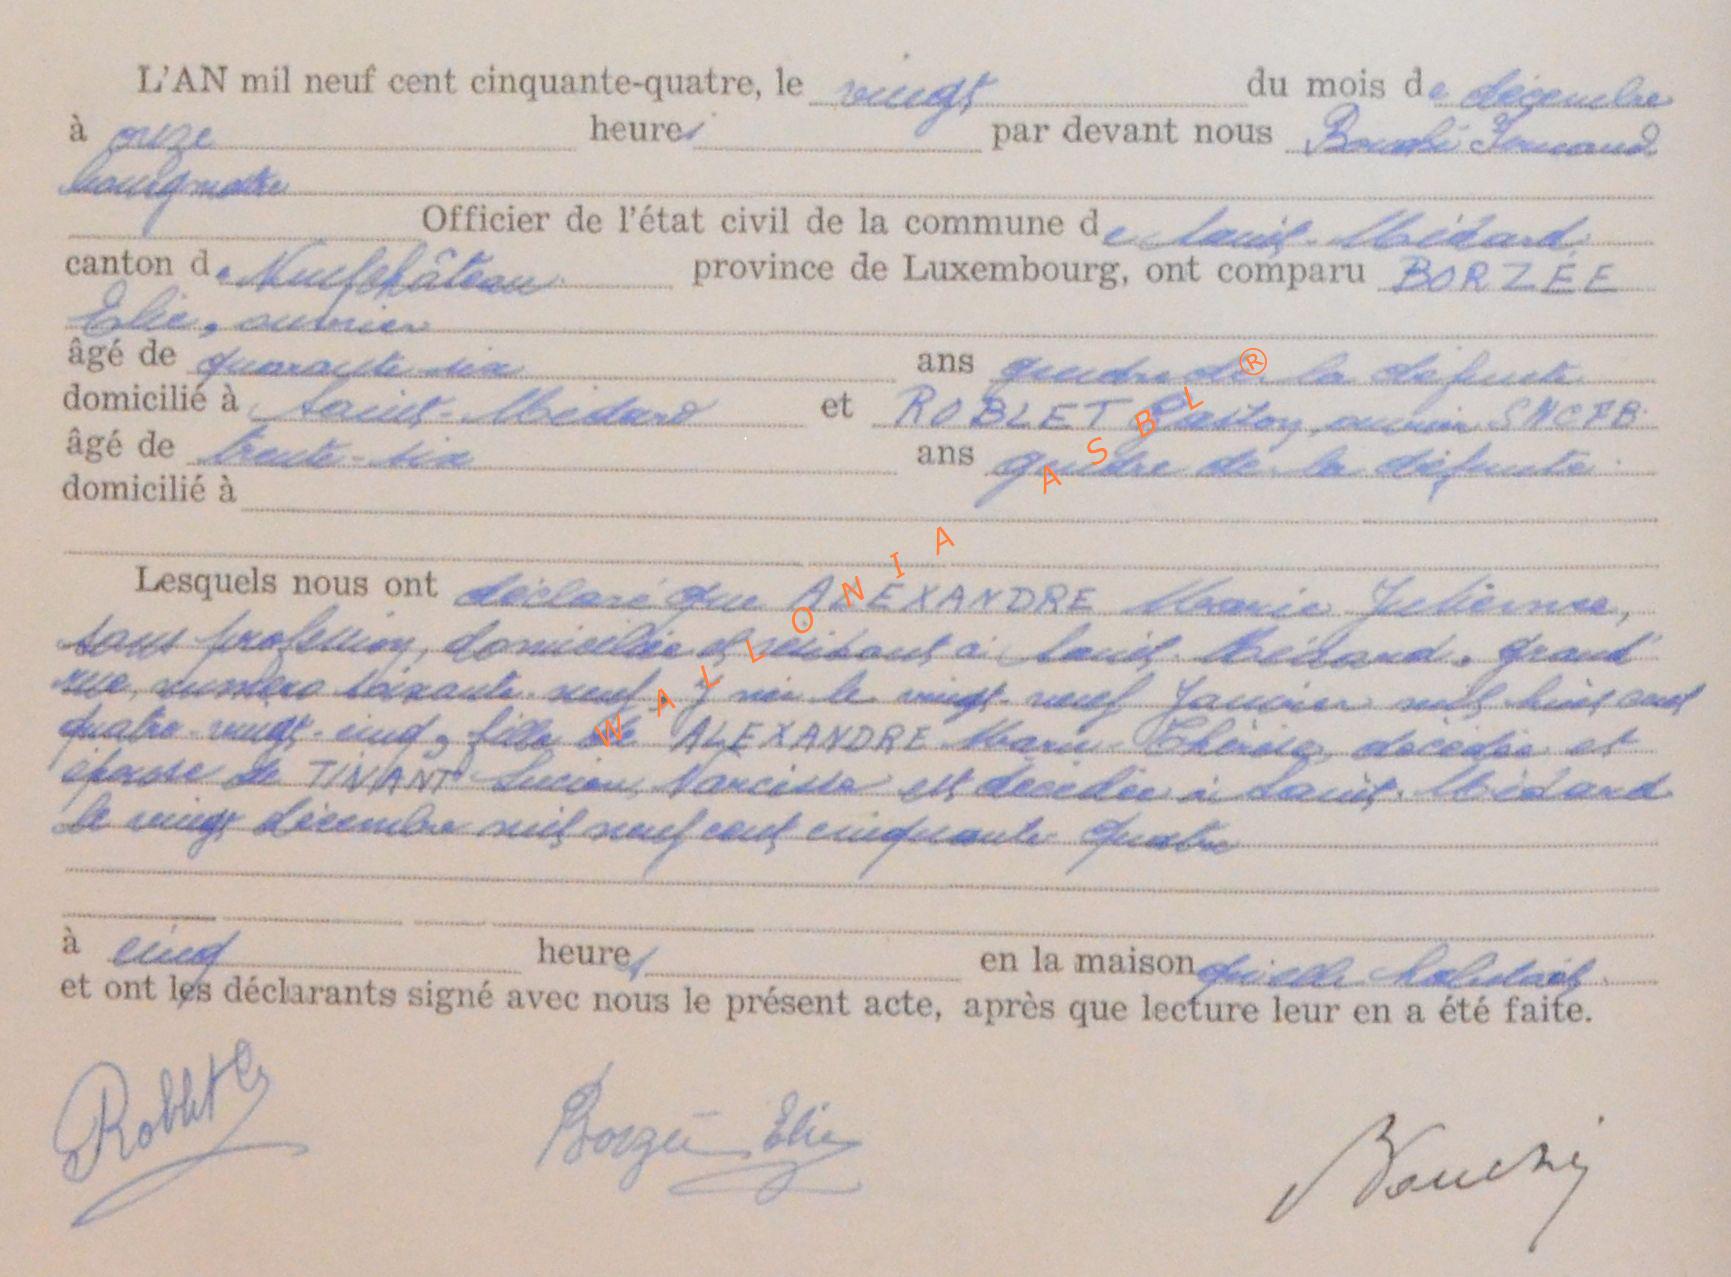 L'AN mil neuf cent cinquante-quatre, le vingt du mois de décembre
à onze heures par devant nous Fernand
bourgmestre
Officier de l'état civil de la commune de Saint-Médard
canton de Neufchâteau province de Luxembourg, ont comparu BORZÉE
Elie, ouvrier
âgé de quarante-six ans gendre de la défunte
domicilié à Saint-Médard et ROBLET Gaston, ouvrier SNCFB
âgé de trente-six ans gendre de la défunte
domicilié à
Lesquels nous ont déclaré que ALEXANDRE Marie Julienne,
sans profession, domiciliée et résidant à Saint-Médard, grand'
rue, numéro soixante-neuf, y née le vingt-neuf Janvier mil huit cent
quatre-vingt-cinq, fille de ALEXANDRE Marie-Thérèse, décédée et
épouse de TINANT Lucien, Narcisse est décédée à Saint-Médard
le vingt décembre mil neuf cent cinquante quatre
à cinq heures en la maison qu'elle habitait
et ont les déclarants signé avec nous le présent acte, après que lecture leur en a été faite.
Roblet G Borzée Elie
WALLONIA ASBL ®